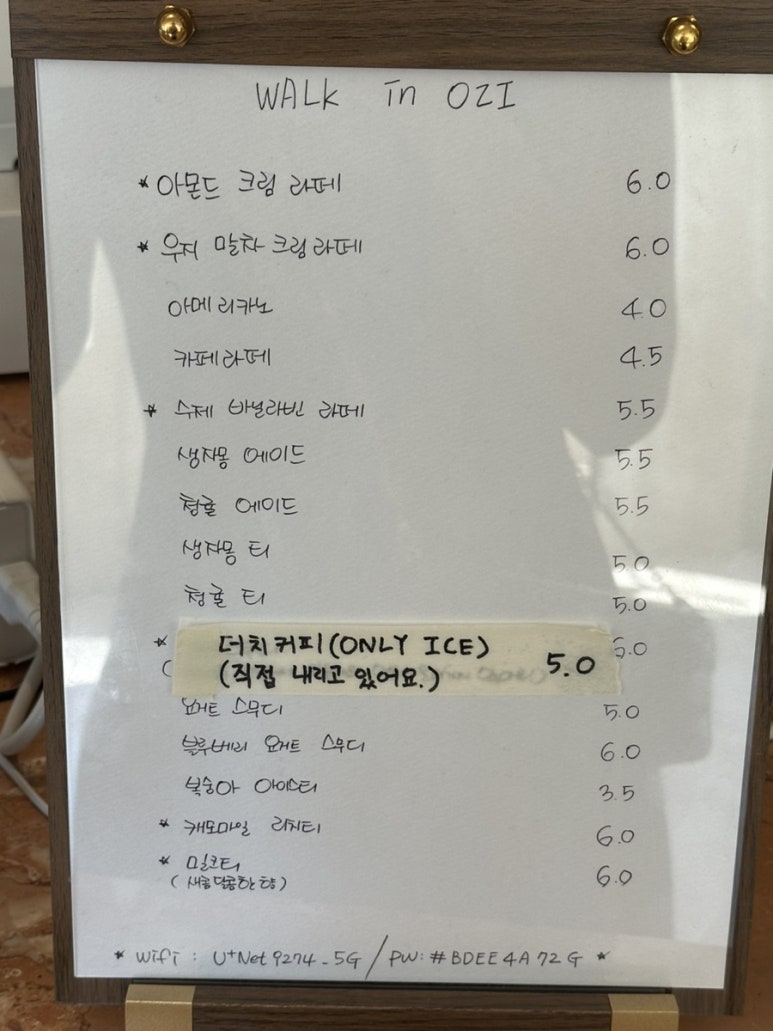 WALK in OZI
* 아몬드 크림 라떼 6.0
* 우지 말차 크림라떼 6.0
아메리카노 4.0
카페라떼 4.5
* 수제 바닐라빈 라떼 5.5
생자몽 에이드 5.5
청귤 에이드 5.5
생자몽 티 5.0
청귤 티 5.0
* 더치커피(ONLY ICE) 5.0
(직접 내리고 있어요.)
요거트 스무디 5.0
블루베리 요거트 스무디 6.0
복숭아 아이스티 3.5
* 캐모마일 리치티 6.0
* 밀크티 6.0
(새콤달콤한 향)
* Wifi : U+Net9274_5G / PW: #BDEE4A72G *